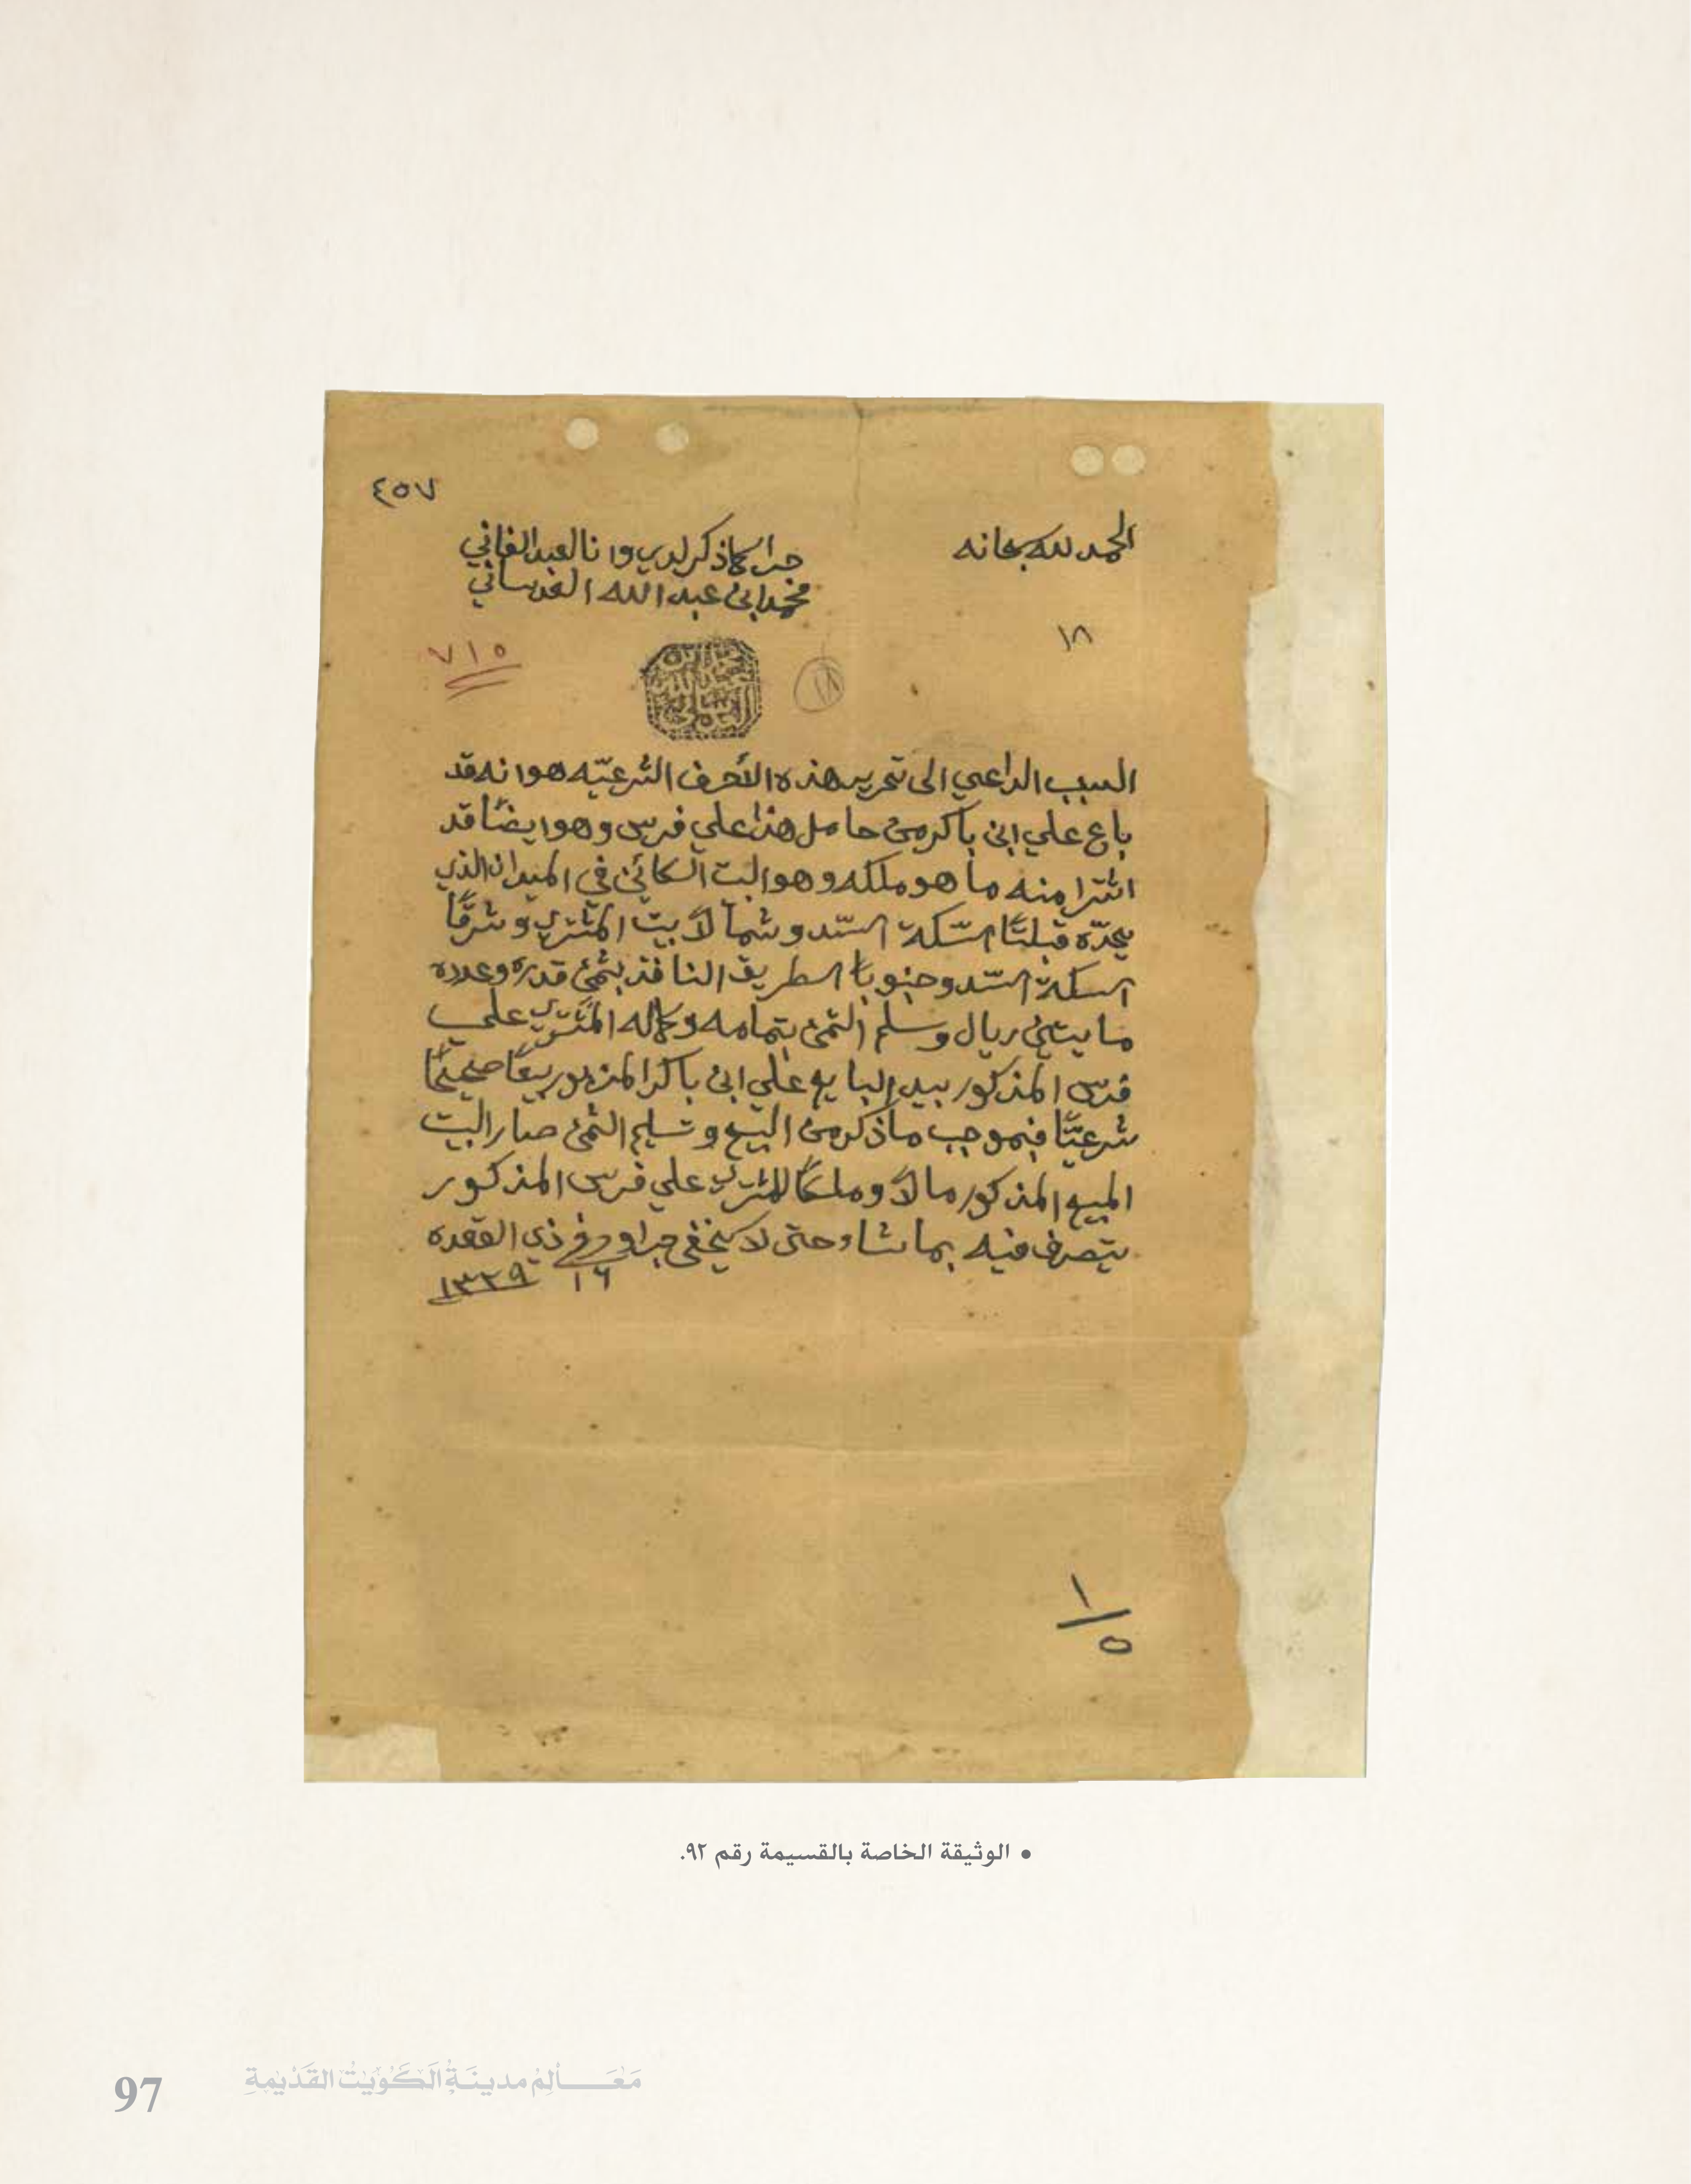 ٤٥٧
الحمد لله سبحانه
جرا كما ذكر لدي وانا العبد الفاني
محمد ابن عبد الله العدساني
١٨
٧١٥
١٨
السبب الداعي الى تحرير هذه الأحرف الشرعيّه هو انه قد
باع علي ابن باكر من حامل هذا علي فرس وهو ايضًا قد
اشترا منه ما هو ملكه وهو البيت الكائن في الميدان الذي
يحدّه قبلتًا السّكة السّد وشمالاً بيت المشتري وشرقًا
السكة السّد وجنوبًا الطريق النافذ بثمن قدره وعدده
مايتين ريال وسلم الثمن بتمامه وكماله المشتري علي
فرس المذكور بيد البايع علي ابن باكر المزبور بيعًا صحيحًا
شرعيًّا فبموجب ما ذكر من البيع وتسليم الثمن صار البيت
المبيع المذكور مالاً وملكًا للمشتري علي فرس المذكور
يتصرف فيه بما شاء حتى لا يخفى جرا وحرر في ذي القعده
١٦ ١٣٢٩
١/٥
• الوثيقة الخاصة بالقسيمة رقم ٩٢.
97 مَعَالِم مدينَة الكُوَيْت القَدِيمَةِ